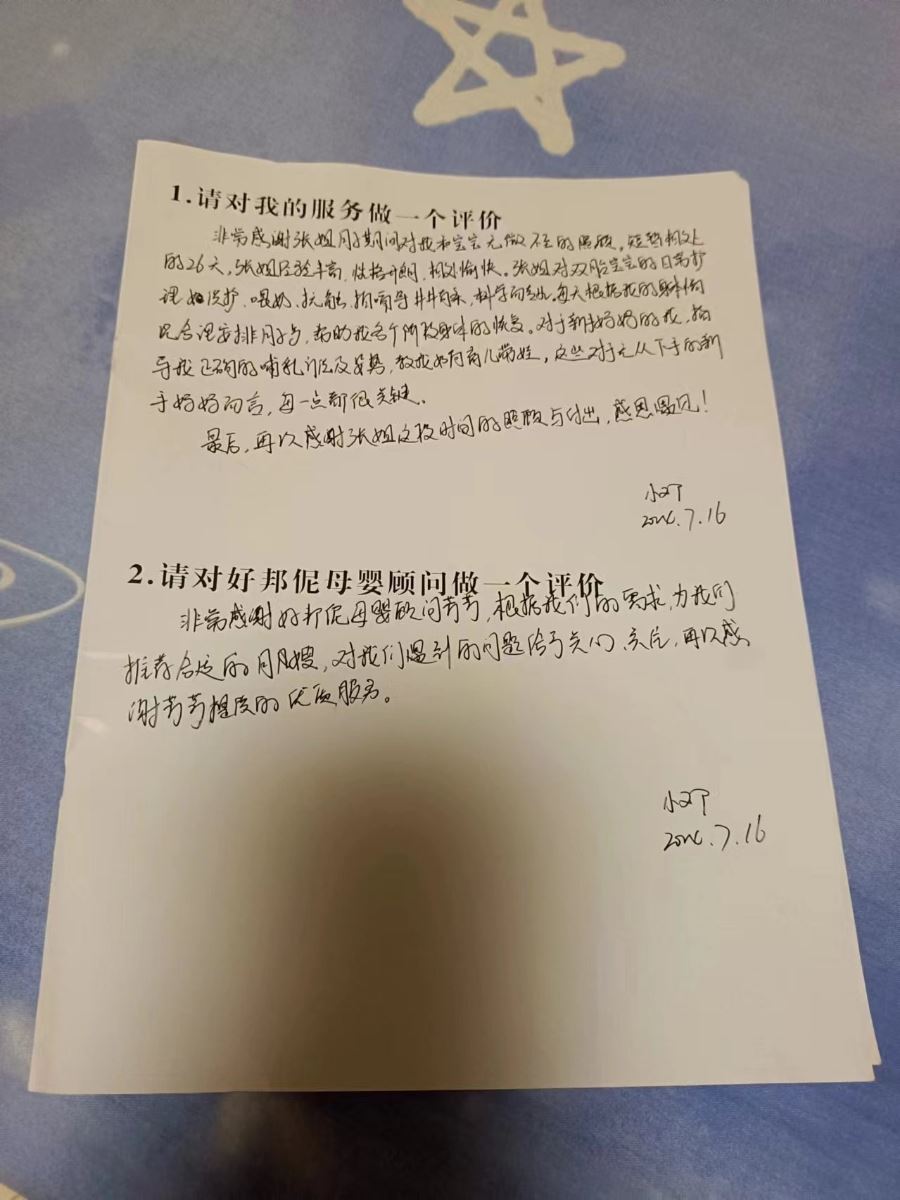 1.请对我的服务做一个评价
非常感谢张姐月子期间对我和宝宝无微不至的照顾,短暂相处
的26天,张姐经验丰富,性格开朗,相处愉快。张姐对双胎宝宝的日常护
理如洗护、喂奶、抚触、拍嗝等井井有条,科学而细心。每天根据我的身体情
况合理安排月子餐,帮助我各个阶段身体的恢复。对于新手妈妈的我,指
导我正确的哺乳方法及姿势,教我如何育儿带娃,这些对于无从下手的新
手妈妈而言,每一点都很关键。
最后,再次感谢张姐这段时间的照顾与付出,感恩遇见!
小邓
7.16
2.请对好邦伲母婴顾问做一个评价
非常感谢好邦伲母婴顾问芳芳,根据我们的需求,为我们
推荐合适的月嫂,对我们遇到的问题给予关心、关注,再次感
谢芳芳提供的优质服务。
7.16